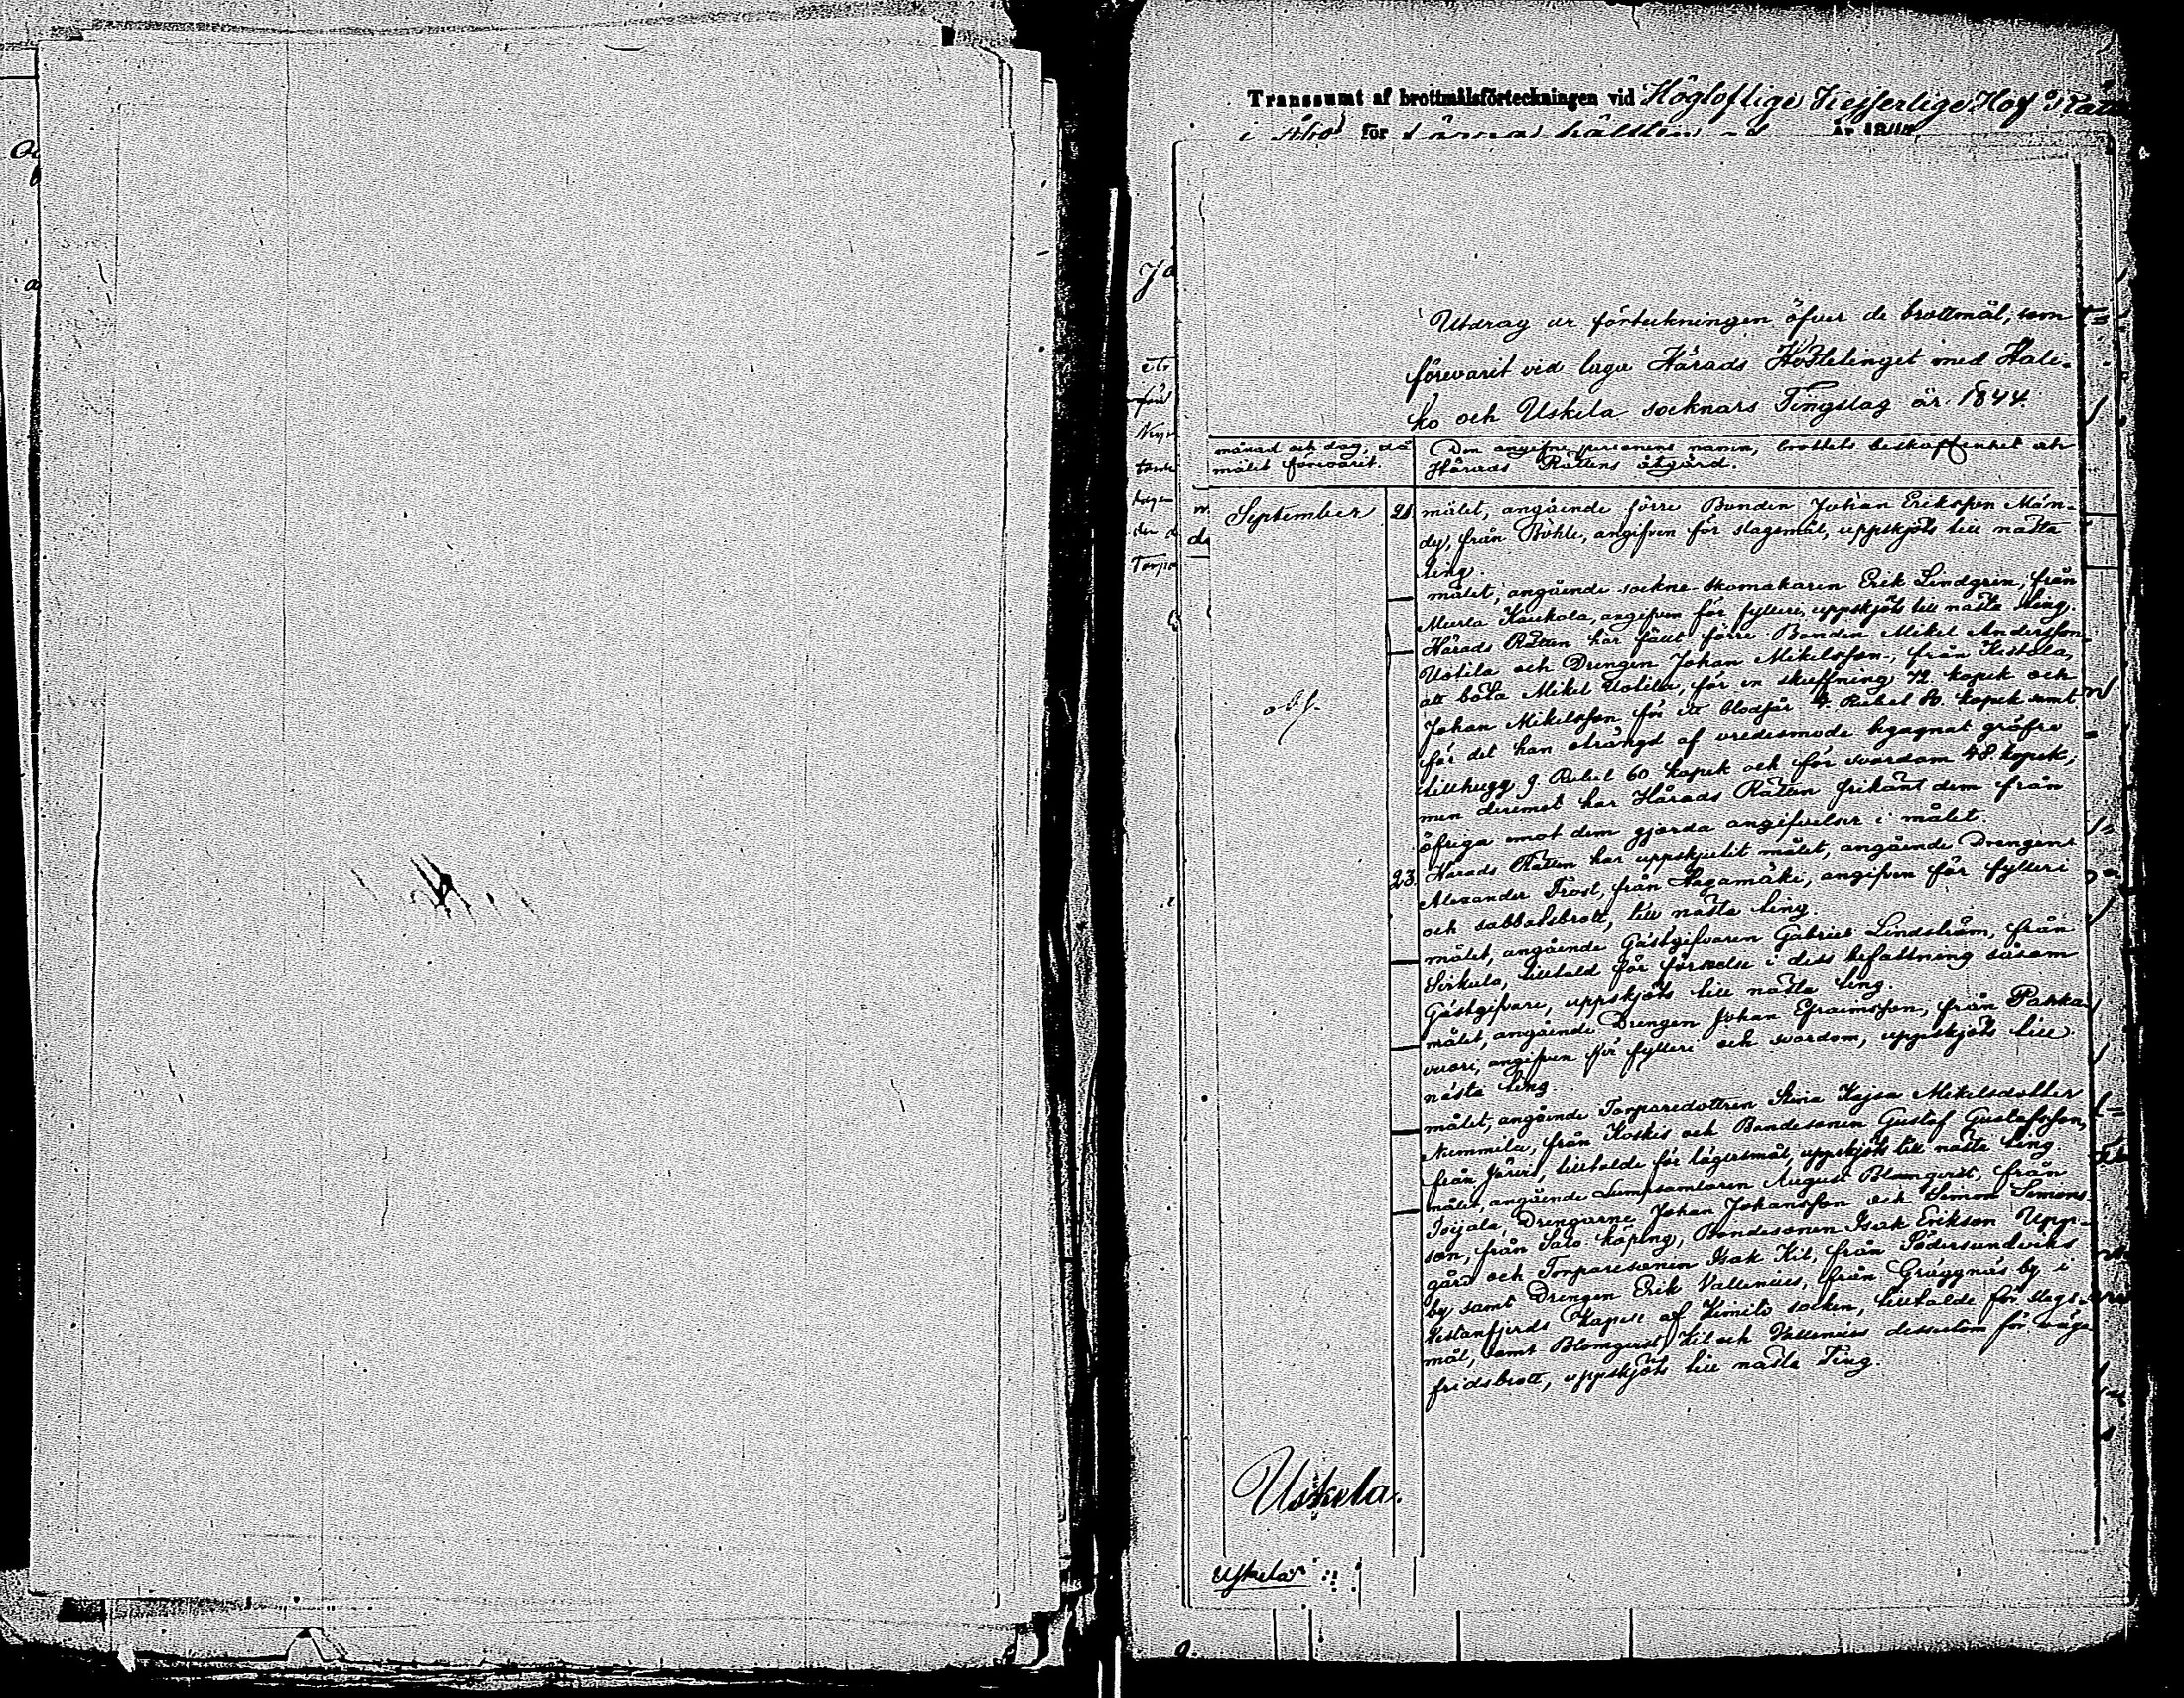 Transsumt af brottmålsförteckningen vid Högloflige Kejserlige Hof Rätten
i Åbo för år 1844
Utdrag ur förteckningen öfver de brottmål, som
förevarit vid laga Härads Höstetinget med Hali-
ko och Uskela socknars Tingslag år 1844.
månad och dag, då
målet förevarit.
Den angifne personens namn, brottets beskaffenhet och
Härads Rättens åtgård.
September 21. målet, angående förre Bonden Johan Eriksson Män-
dy, från Böhle, angifven för slagsmål, uppskjöts till nästa
ting.
målet, angående sockne-skomakaren Erik Lindgren, från
Murla Kaukola, angifven för fylleri, uppskjöts till nästa ting.
Härads Rätten har fällt förre Bonden Mikel Andersson
Uotila och Drengen Johan Mikelsson, från Ketola,
att böta Mikel Uotila, för en skuffning 72 kopek och
Johan Mikelsson för ett blodsår 4 Rubel 80 kopek samt
för det han oträngd af vredesmode begagnat gröfre
tillhugg 9 Rubel 60 kopek och för svordom 48 kopek;
men deremot har Härads Rätten frikänt dem från
öfriga emot dem gjorda angifvelser i målet.
23. Härads Rätten har uppskjutit målet, angående Drengen
Alexander Trost, från Hagamäki, angifven för fylleri
och sabbatsbrott, till nästa ting.
målet, angående Gästgifvaren Gabriel Lindström, från
Sirkula, tilltald för förseelse i dess befattning såsom
Gästgifvare, uppskjöts till nästa ting.
målet, angående Drengen Johan Efraimsson, från Paska-
vuori, angifven för fylleri och svordom, uppskjöts till
nästa ting.
målet, angående Torparedottren Stina Kajsa Mikelsdotter
Nummila, från Koskis och Bondesonen Gustaf Gustafsson,
från Järvis, tilltalde för lägersmål, uppskjöts till nästa ting.
målet, angående Lumpsamlaren August Blomqvist, från
Toijala, Drengarne Johan Johansson och Simon Simons-
son, från Salo köping, Bondesonen Isak Erikson Upp-
gård och Torparesonen Isak Kil, från Södersundviks
by samt Drengen Erik Vallenius, från Gräggnäs by i
Vestanfjerds Kapell af Kimito socken, tilltalde för slags-
mål, samt Blomqvist, Kil och Vallenius dessutom för väga-
fridsbrott, uppskjöts till nästa Ting.
Uskela.
Uskela